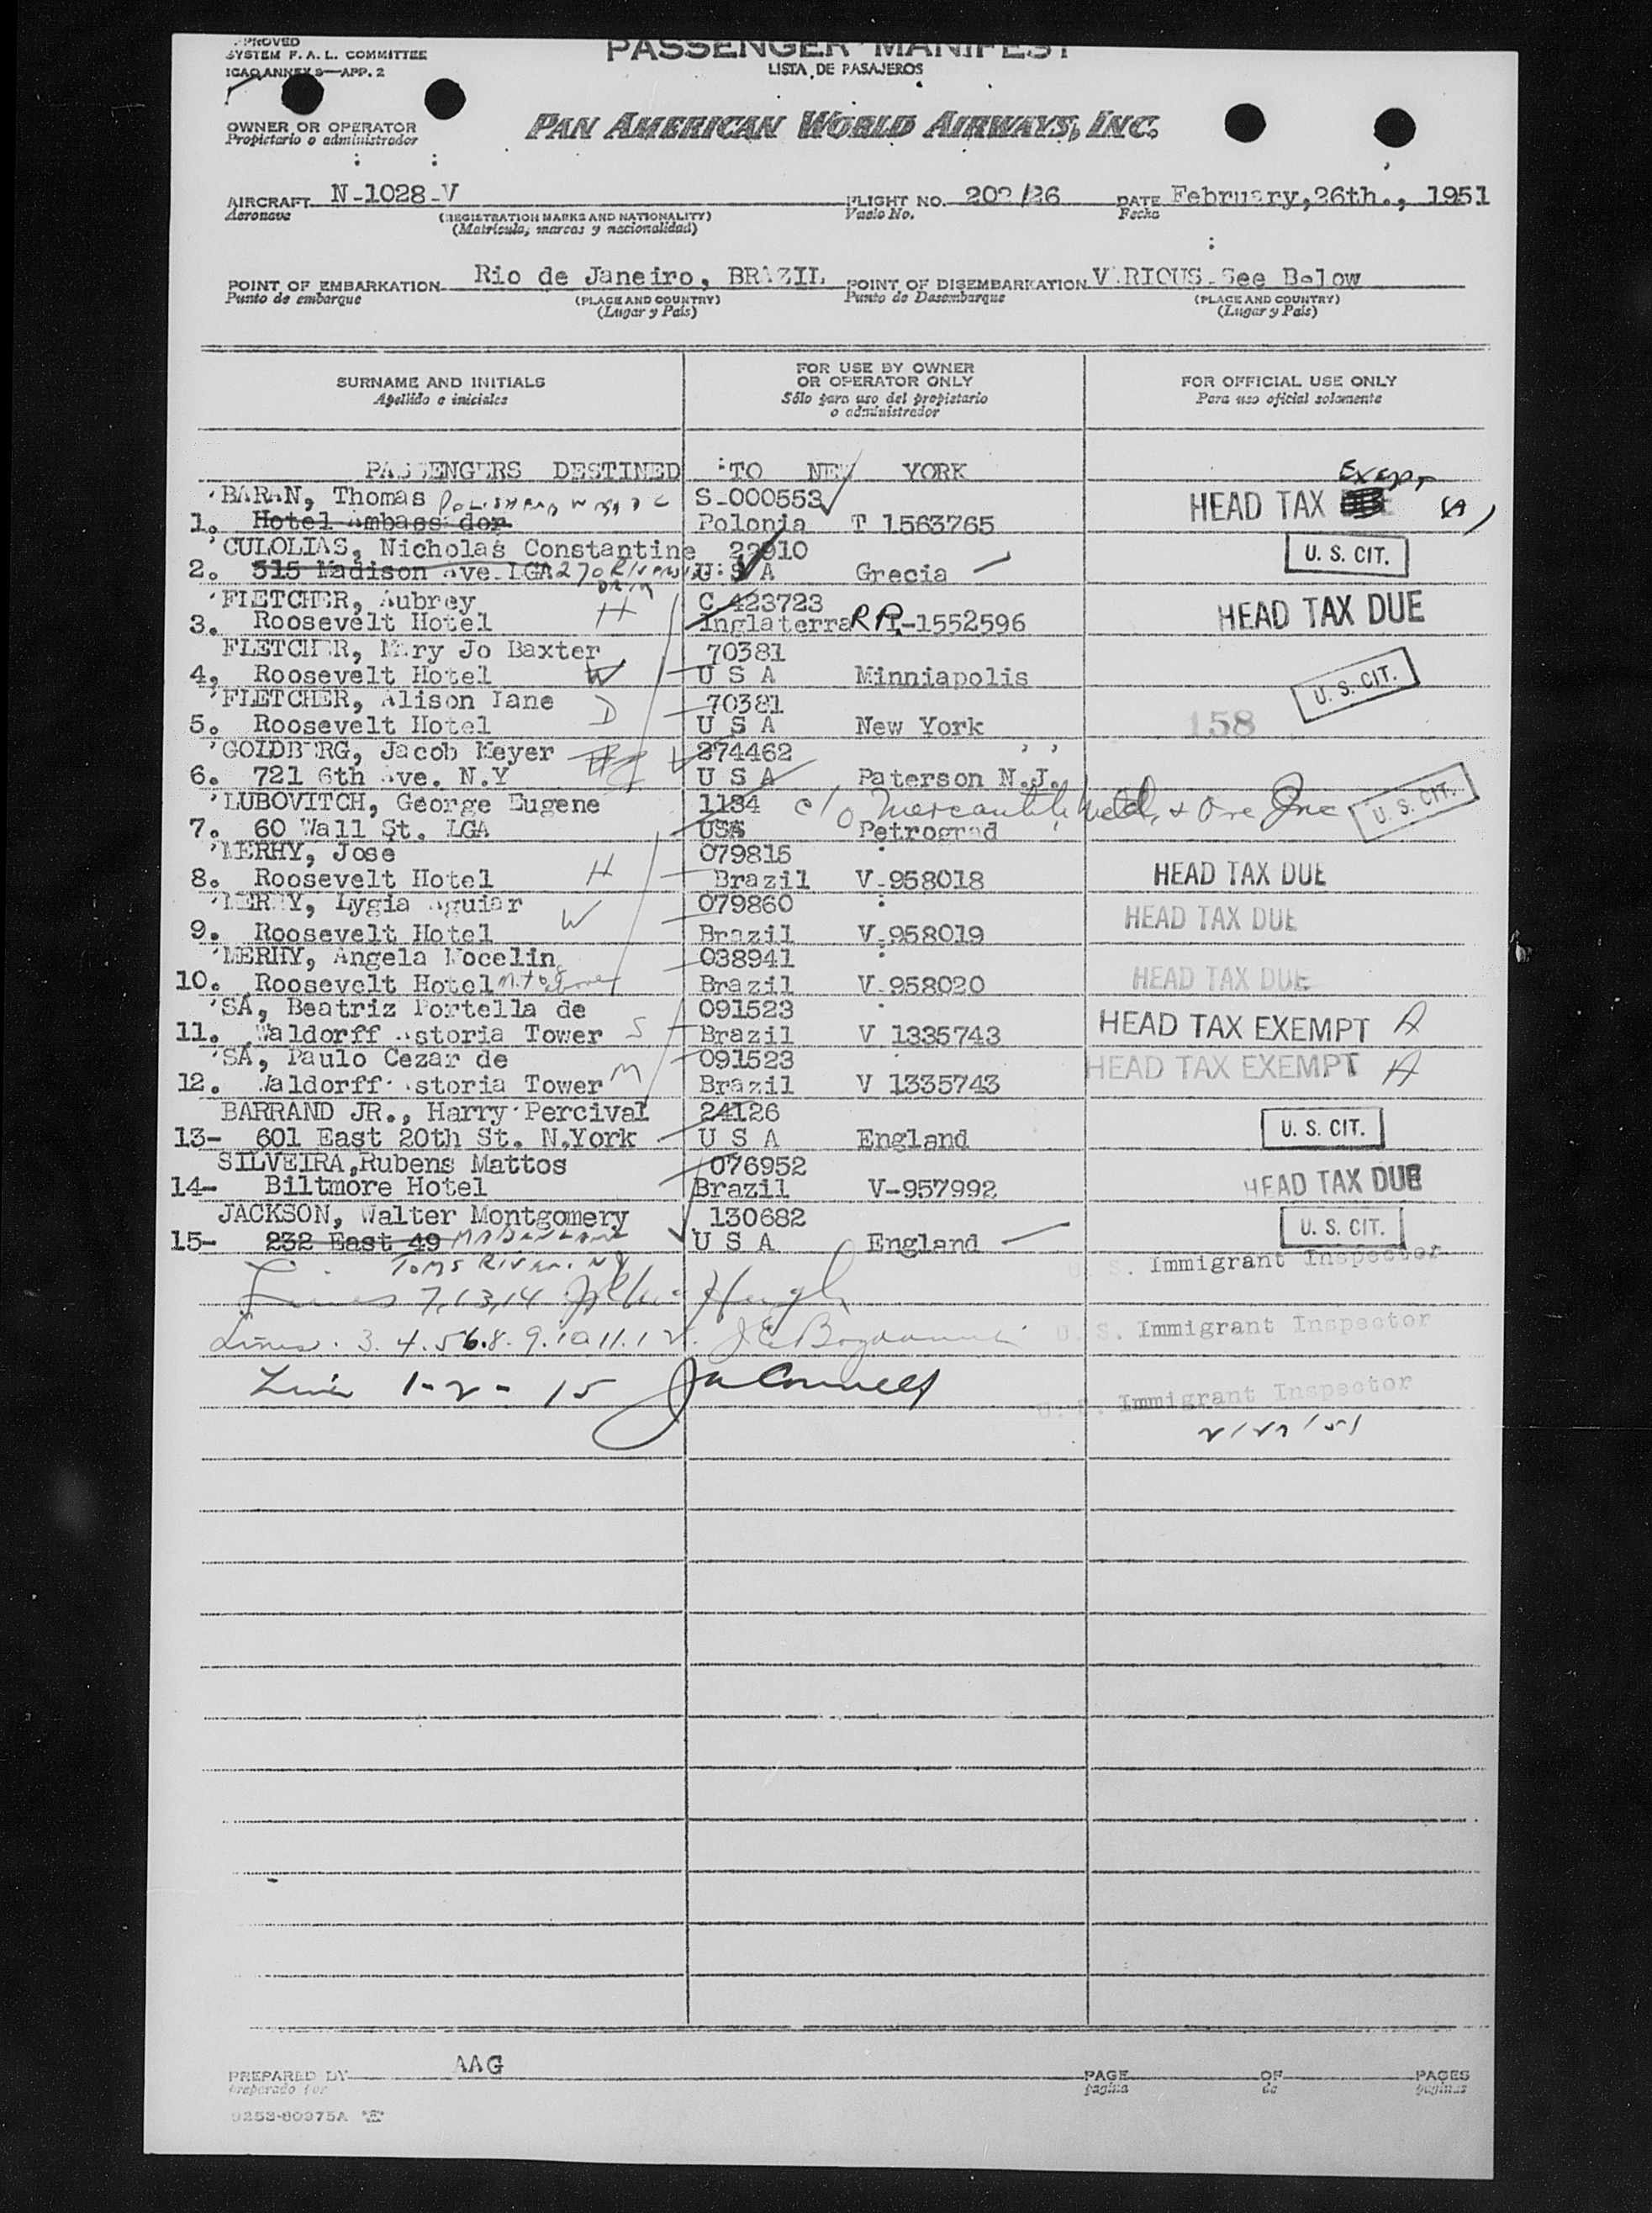 SYSTEM F. A. L. COMMITTEE
ICAO ANNEX 9—APP. 2
PASSENGER MANIFEST
LISTA DE PASAJEROS
OWNER OR OPERATOR
Propietario o administrador
PAN AMERICAN WORLD AIRWAYS, INC.
AIRCRAFT N-1028-V FLIGHT NO. 202/26 DATE February,26th., 1951
Aeronave (REGISTRATION MARKS AND NATIONALITY) Vuelo No. Fecha
(Matrícula, marcas y nacionalidad)
POINT OF EMBARKATION Rio de Janeiro, BRAZIL POINT OF DISEMBARKATION VARIOUS-See Below
Punto de embarque (PLACE AND COUNTRY) Punto de Desembarque (PLACE AND COUNTRY)
(Lugar y País) (Lugar y País)
SURNAME AND INITIALS FOR USE BY OWNER OR OPERATOR ONLY FOR OFFICIAL USE ONLY
Apellido e iniciales Sólo para uso del propietario o administrador Para uso oficial solamente
PASSENGERS DESTINED TO NEW YORK
BARAN, Thomas S-000553 HEAD TAX EXEMPT (A)
1. Hotel Ambassador Polonia T 1563765
CULOLIAS, Nicholas Constantine 22910 U. S. CIT.
2. 515 Madison Ave. LGA 270 U S A Grecia
FLETCHER, Aubrey H C 423723 HEAD TAX DUE
3. Roosevelt Hotel Inglaterra RP I-1552596
FLETCHER, Mary Jo Baxter 70381
4, Roosevelt Hotel W U S A Minniapolis U. S. CIT.
FLETCHER, Alison Iane D 70381
5. Roosevelt Hotel U S A New York 158
GOLDBERG, Jacob Meyer 274462
6. 721 6th Ave. N.Y U S A Paterson N.J.
LUBOVITCH, George Eugene 1184 c/o Mercantile Metal & Ore Inc U. S. CIT.
7. 60 Wall St. LGA USA Petrograd
MERHY, Jose 079815
8. Roosevelt Hotel H Brazil V-958018 HEAD TAX DUE
MERHY, Lygia Aguiar W 079860 HEAD TAX DUE
9. Roosevelt Hotel Brazil V-958019
MERHY, Angela Nocelin 038941
10. Roosevelt Hotel Brazil V-958020 HEAD TAX DUE
SA, Beatriz Portella de 091523
11. Waldorff Astoria Tower S Brazil V 1335743 HEAD TAX EXEMPT A
SA, Paulo Cezar de 091523
12. Waldorff Astoria Tower M Brazil V 1335743 HEAD TAX EXEMPT A
BARRAND JR., Harry Percival 24126
13- 601 East 20th St. N.York U S A England U. S. CIT.
SILVEIRA,Rubens Mattos 076952
14- Biltmore Hotel Brazil V-957992 HEAD TAX DUE
JACKSON, Walter Montgomery 130682
15- 232 East 49 U S A England U. S. CIT.
Toms River. NJ U. S. Immigrant Inspector
Lines 7,13,14
Lines. 3. 4. 5 6. 8. 9. 10 11. 12. U. S. Immigrant Inspector
Line 1-2-15 U. S. Immigrant Inspector
2/27/51
PREPARED BY AAG PAGE OF PAGES
preparado por página de páginas